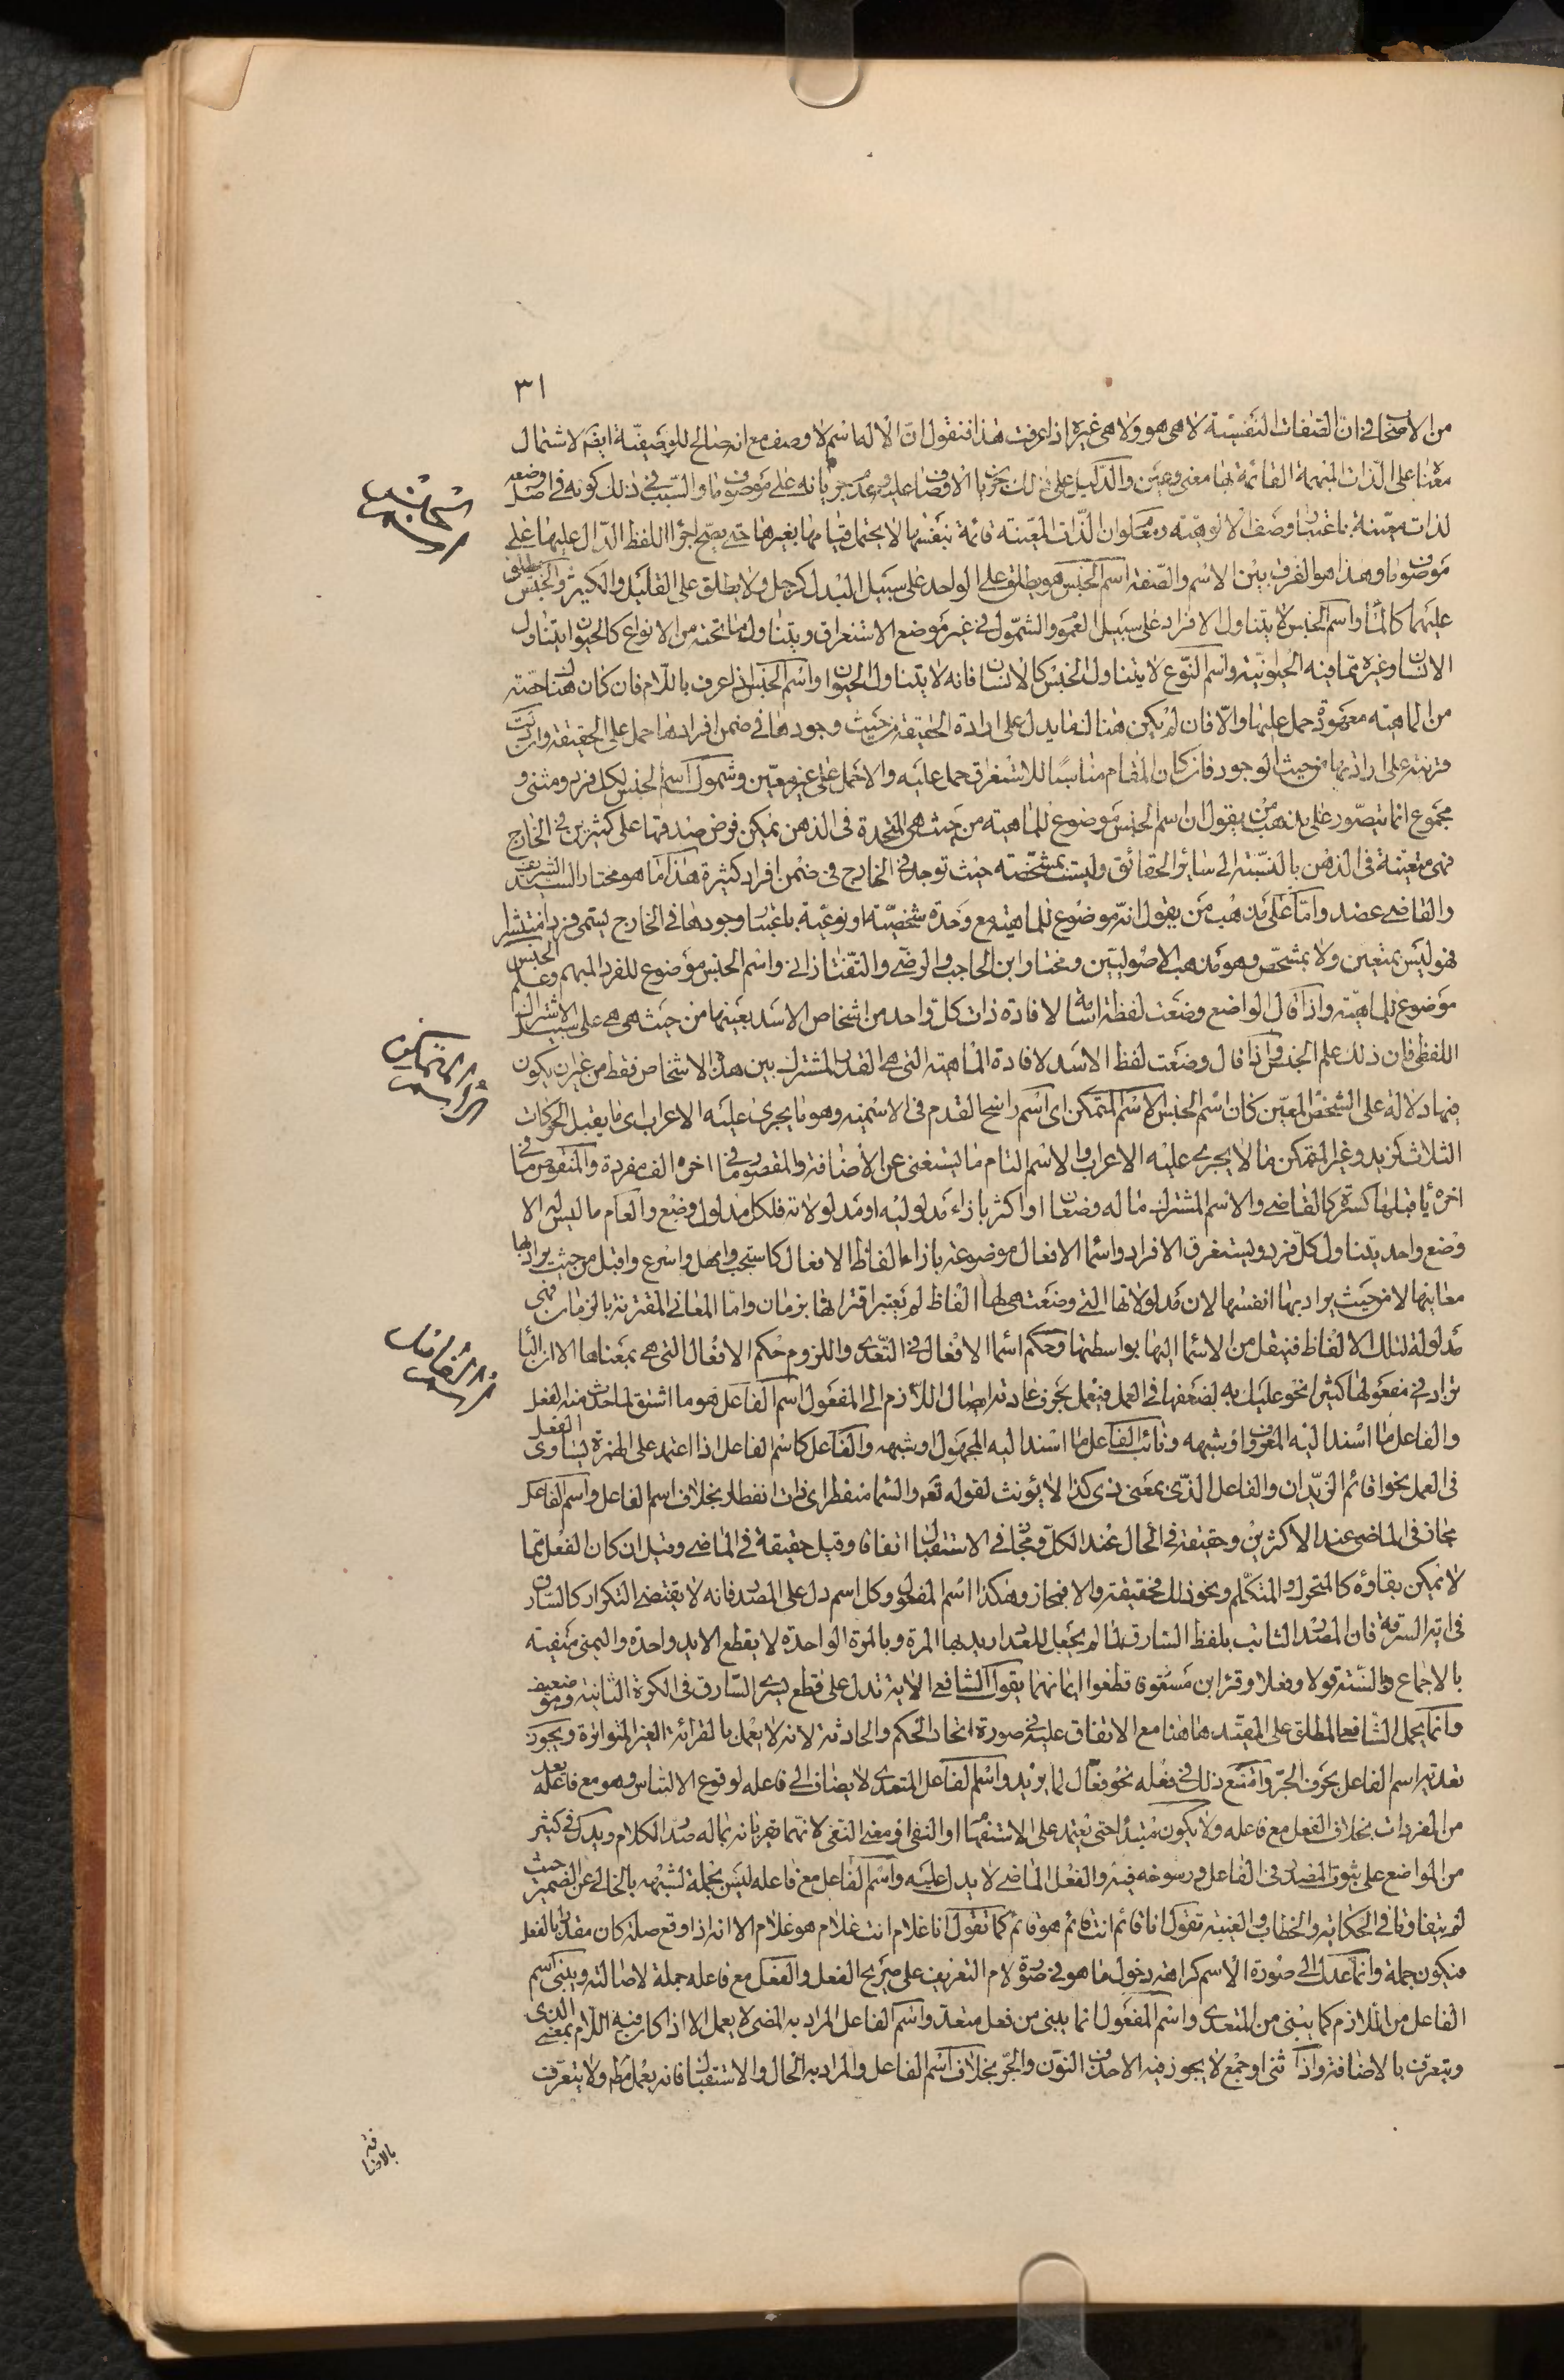 ٣١
من الاصحاب في ان الصفات النفسية لا هى هو ولا هى غيره اذا عرفت هذا فنقول ان الاله اسم لا وصف مع انه صالح للوصفية ايضا لاشتمال
معناه على الذات المبهمة القائمة بها معنى معين والدليل على ذلك جريان الاوصاف عليه وعدم جريانه على موصوف ما والسبب فى ذلك كونه فى اصل وضعه
لذات معينة باعتبار وصف الالوهية ومعلوم ان الذات المعينة قائمة بنفسها لا يحتمل قيامها بغيرها حتى يصح اجراء اللفظ الدال عليها على
موصوف ما وهذا هو الفرق بين الاسم والصفة اسم الجنس هو يطلق على الواحد على سبيل البدل كرجل ولا يطلق على القليل والكثير والجنس يطلق
عليهما كالماء واسم الجنس لا يتناول الافراد على سبيل العموم والشمول فى غير موضع الاستغراق ويتناول ما تحته من الانواع كالحيوان يتناول
الانسان وغيره مما فيه الحيوانية واسم النوع لا يتناول الجنس كالانسان فانه لا يتناول الحيوان واسم الجنس اذا عرف باللام فان كان هناك حصة
من الماهية معهودة حمل عليها والا فان لم يكن هناك ما يدل على ارادة الحقيقة من حيث وجودها فى ضمن افرادها حمل على الحقيقة وان كانت
قرينة على ارادتها من حيث الوجود فان كان المقام مناسبا للاستغراق حمل عليه والا حمل على غير معين وشمول اسم الجنس لكل فرد ومثنى و
مجموع انما يتصور على مذهب من يقول ان اسم الجنس موضوع للماهية من حيث هى المتحدة فى الذهن يمكن فرض صدقها على كثيرين فى الخارج
فهى متعينة فى الذهن بالنسبة الى سائر الحقائق وليست بمشخصة حيث توجد فى الخارج فى ضمن افراد كثيرة هذا ما هو مختار السيد الشريف
والقاضى عضد واما على مذهب من يقول انه موضوع للماهية مع وحدة شخصية او نوعية باعتبار وجودها فى الخارج يسمى فردا منتشرا
فهو ليس بمتعين ولا بمشخص وهو مذهب الاصوليين ومختار ابن الحاجب والرضى والتفتازانى واسم الجنس موضوع للفرد المبهم وعلم الجنس
موضوع للماهية واذا قال الواضع وضعت لفظة اسامة لافادة ذات كل واحد من اشخاص الاسد بعينها من حيث هى هى على سبيل الاشتراك
اللفظى فان ذلك علم الجنس واذا قال وضعت لفظ الاسد لافادة الماهية التى هى القدر المشترك بين هذه الاشخاص فقط من غير ان يكون
فيها دلالة على الشخص المعين كان اسم الجنس الاسم المتمكن اى اسم راسخ القدم فى الاسمية وهو ما يجرى عليه الاعراب اى ما يقبل الحركات
الثلاث كزيد وغير المتمكن ما لا يجرى عليه الاعراب والاسم التام ما يستغنى عن الاضافة والمقصور ما فى اخره الف مفردة والمنقوص ما فى
اخره ياء قبلها كسرة كالقاضى والاسم المشترك ما له وضعان او اكثر بازاء مدلوليه او مدلولاته فلكل مدلول وضع والعام ما ليس له الا
وضع واحد يتناول كل فرد ويستغرق الافراد واسماء الافعال موضوعة بازاء الفاظ الافعال كاستجب وامهل واسرع واقبل من حيث يراد بها
معانيها لا من حيث يراد بها انفسها لان مدلولاتها التى وضعت هى لها الفاظ لم يعتبر اقترانها بزمان واما المعانى المقترنة بالزمان فهى
مدلولة لتلك الالفاظ فينتقل من الاسماء اليها بواسطتها وحكم اسماء الافعال فى التعدى واللزوم حكم الافعال التى هى بمعناها الا ان الباء
تزاد فى مفعولها كثيرا نحو عليك به لضعفها فى العمل فتعمل بحرف عادته ايصال اللازم الى المفعول اسم الفاعل هو ما اشتق لما حدث منه الفعل
والفاعل ما اسند اليه المعروف او شبهه ونائب الفاعل ما اسند اليه المجهول او شبهه والفاعل كاسم الفاعل اذا اعتمد على الهمزة يساوى الفعل
فى العمل نحو اقائم الزيدان والفاعل الذى بمعنى ذى كذا لا يؤنث لقوله تعم والسماء منفطر اى ذات انفطار بخلاف اسم الفاعل واسم الفاعل
مجاز فى الماضى عند الاكثرين وحقيقة فى الحال عند الكل ومجاز فى الاستقبال اتفاقا وقيل حقيقة فى الماضى وقيل ان كان الفعل مما
لا يمكن بقاؤه كالمتحرك والمتكلم ونحو ذلك فحقيقة والا فمجاز وهكذا اسم المفعول وكل اسم دل على المصدر فانه لا يقتضى التكرار كالسارق
فى اية السرقة فان المصدر الثابت بلفظ السارق لما لم يحتمل العدد اريد بها المرة وبالمرة الواحدة لا يقطع الا يد واحدة واليمنى متعينة
بالاجماع والسنة قولا وفعلا وقراءة ابن مسعود فاقطعوا ايمانهما يقول الشافعى الاية تدل على قطع يسرى السارق فى الكرة الثانية وهو ضعيف
وانما يحمل الشافعى المطلق على المقيد هاهنا مع الاتفاق عليه فى صورة اتحاد الحكم والحادثة لانه لا يعمل بالقرائة الغير المتواترة ويجوز
تعدية اسم الفاعل بحرف الجر وامتنع ذلك فى فعله نحو فعال لما يريد واسم الفاعل المتعدى لا يضاف الى فاعله لوقوع الالتباس وهو مع فاعله يعد
من المفردات بخلاف الفعل مع فاعله ولا يكون مبتدأ حتى يعتمد على الاستفهام او النفى او معنى النفى لانهما يقربانه بما له صدر الكلام ويدل فى كثير
من المواضع على ثبوت المصدر فى الفاعل ورسوخه فيه والفعل الماضى لا يدل عليه واسم الفاعل مع فاعله ليس بجملة لشبهه بالخالى عن الضمير حيث
لم يتفاوتا فى الحكاية والخطاب والغيبة تقول انا قائم انت قائم هو قائم كما تقول انا غلام انت غلام هو غلام الا انه اذا وقع صلة كان مقدرا بالفعل
فيكون جملة وانما عدل الى صورة الاسم كراهة دخول ما هو فى صورة لام التعريف على صريح الفعل والفعل مع فاعله جملة لاصالته ويبنى اسم
الفاعل من اللازم كما يبنى من المتعدى واسم المفعول انما يبنى من فعل متعد واسم الفاعل المراد به المضى لا يعمل الا اذا كان فيه اللام بمعنى الذى
ويتعرف بالاضافة واذا ثنى او جمع لا يجوز فيه الا حذف النون والجر بخلاف اسم الفاعل والمراد به الحال والاستقبال فانه يعمل مطم ولا يتعرف
بالاضافة